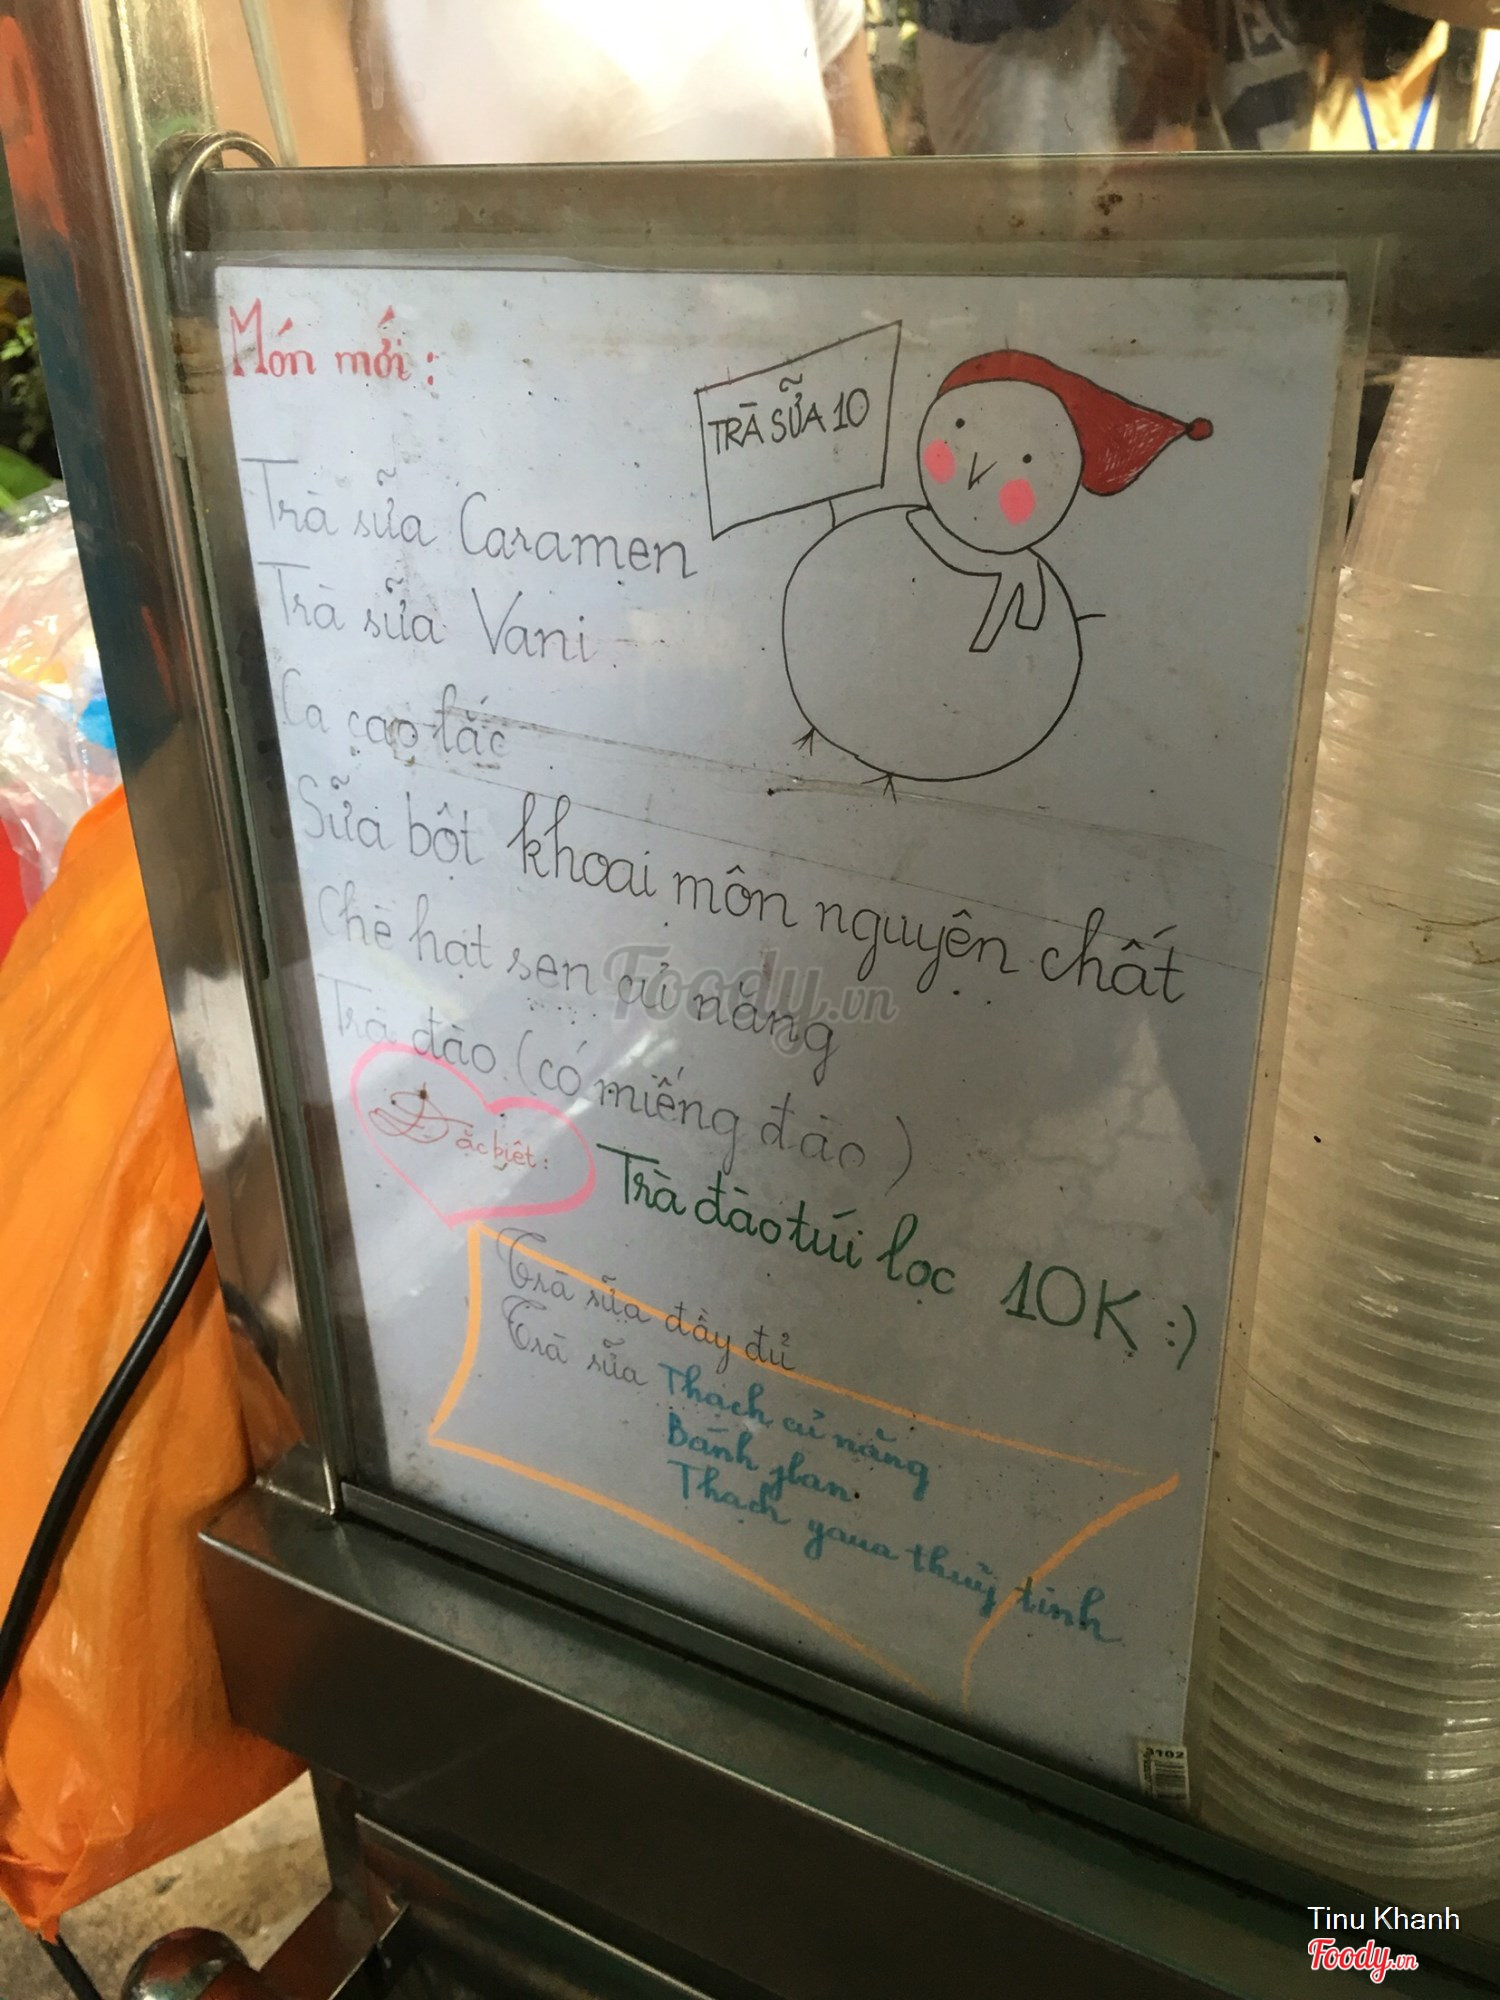 Món mới :
TRÀ SỮA 10
Trà sữa Caramen
Trà sữa Vani
Ca cao lắc
Sữa bột khoai môn nguyên chất
Chè hạt sen củ năng
Trà đào (có miếng đào)
Đặc biệt :
Trà đào túi lọc 10K :)
Trà sữa đầy đủ
Trà sữa Thạch củ năng
Bánh flan
Thạch yaua thủy tinh
Foody.vn
3102
Tinu Khanh
Foody.vn